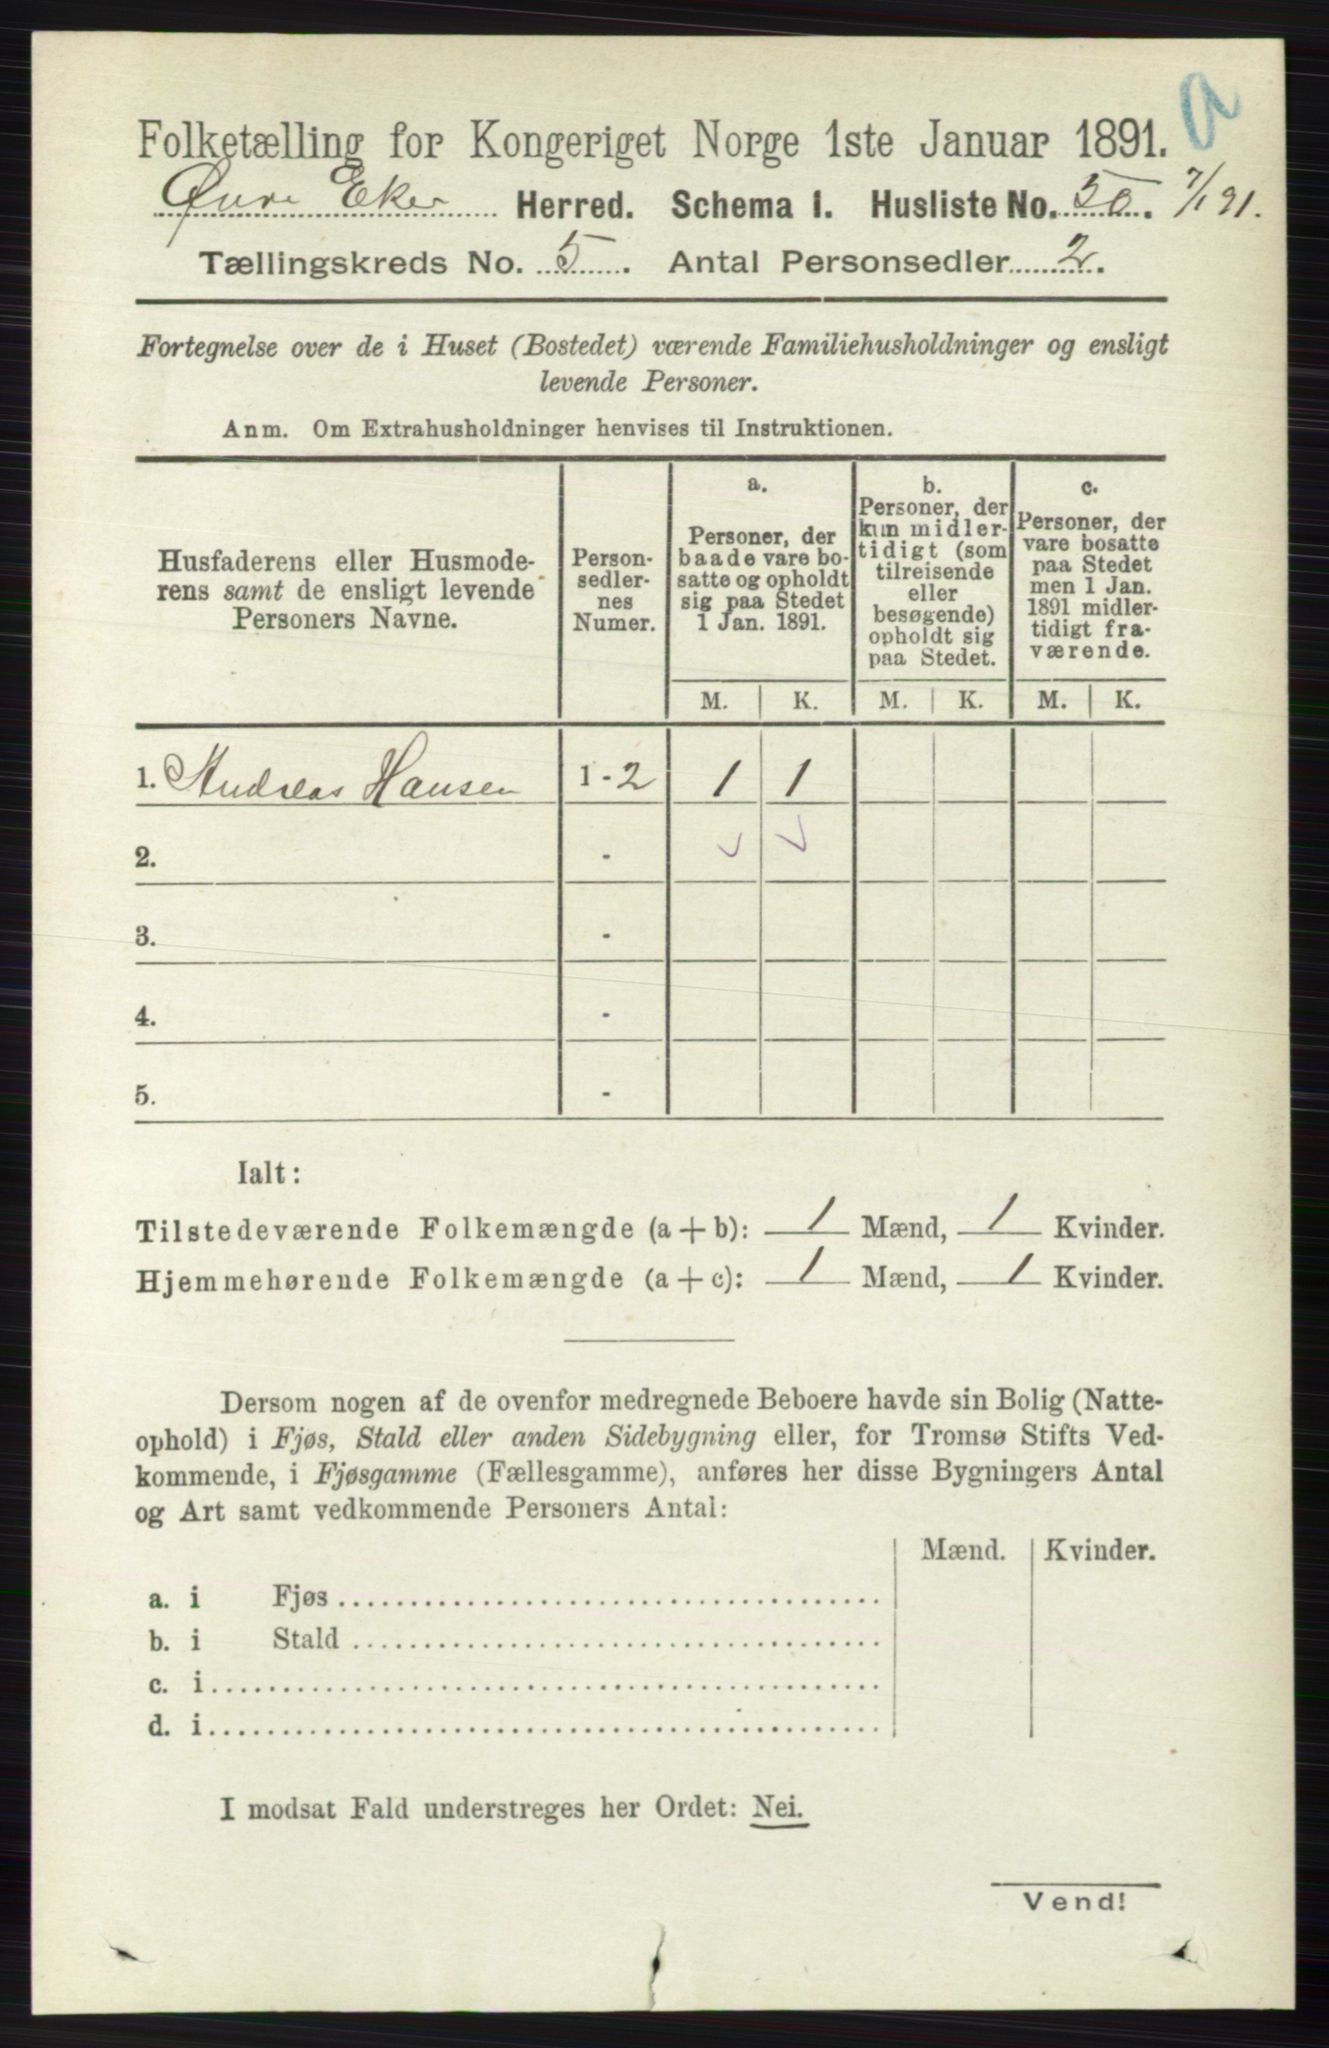 Folketælling for Kongeriget Norge 1ste Januar 1891.
Øvre Eker Herred. Schema I. Husliste No. 50. 7/1 91.
Tællingskreds No. 5. Antal Personsedler 2.
Fortegnelse over de i Huset (Bostedet) værende Familiehusholdninger og ensligt
levende Personer.
Anm. Om Extrahusholdninger henvises til Instruktionen.
Husfaderens eller Husmode-
rens samt de ensligt levende
Personers Navne.
Person-
sedler-
nes
Numer.
a.
Personer, der
baade vare bo-
satte og opholdt
sig paa Stedet
1 Jan. 1891.
b.
Personer, der
kun midler-
tidigt (som
tilreisende
eller
besøgende)
opholdt sig
paa Stedet.
c.
Personer, der
vare bosatte
paa Stedet
men 1 Jan.
1891 midler-
tidigt fra-
værende.
M. K. M. K. M. K.
1. Andreas Hansen 1 - 2 1 1
2. -
3. -
4. -
5. -
Ialt:
Tilstedeværende Folkemængde (a + b): 1 Mænd, 1 Kvinder.
Hjemmehørende Folkemængde (a + c): 1 Mænd, 1 Kvinder.
Dersom nogen af de ovenfor medregnede Beboere havde sin Bolig (Natte-
ophold) i Fjøs, Stald eller anden Sidebygning eller, for Tromsø Stifts Ved-
kommende, i Fjøsgamme (Fællesgamme), anføres her disse Bygningers Antal
og Art samt vedkommende Personers Antal:
Mænd. Kvinder.
a. i Fjøs
b. i Stald
c. i
d. i
I modsat Fald understreges her Ordet: Nei.
Vend!